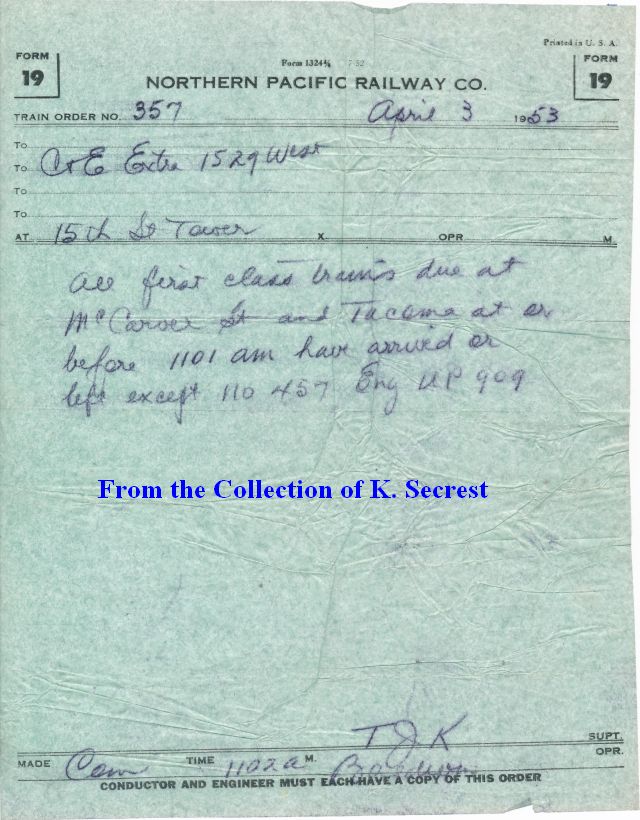 Printed in U. S. A.
FORM 19
Form 1324¾ 7-52
FORM 19
NORTHERN PACIFIC RAILWAY CO.
TRAIN ORDER NO. 357 April 3 1953
To
To C+E Extra 1529 West
To
To
AT 15th St Tower X OPR M
All first class trains due at
McCarver St and Tacoma at or
before 1101 am have arrived or
left except No 457 Eng UP 909
From the Collection of K. Secrest
TJK SUPT.
MADE Com TIME 1102a M. OPR.
CONDUCTOR AND ENGINEER MUST EACH HAVE A COPY OF THIS ORDER